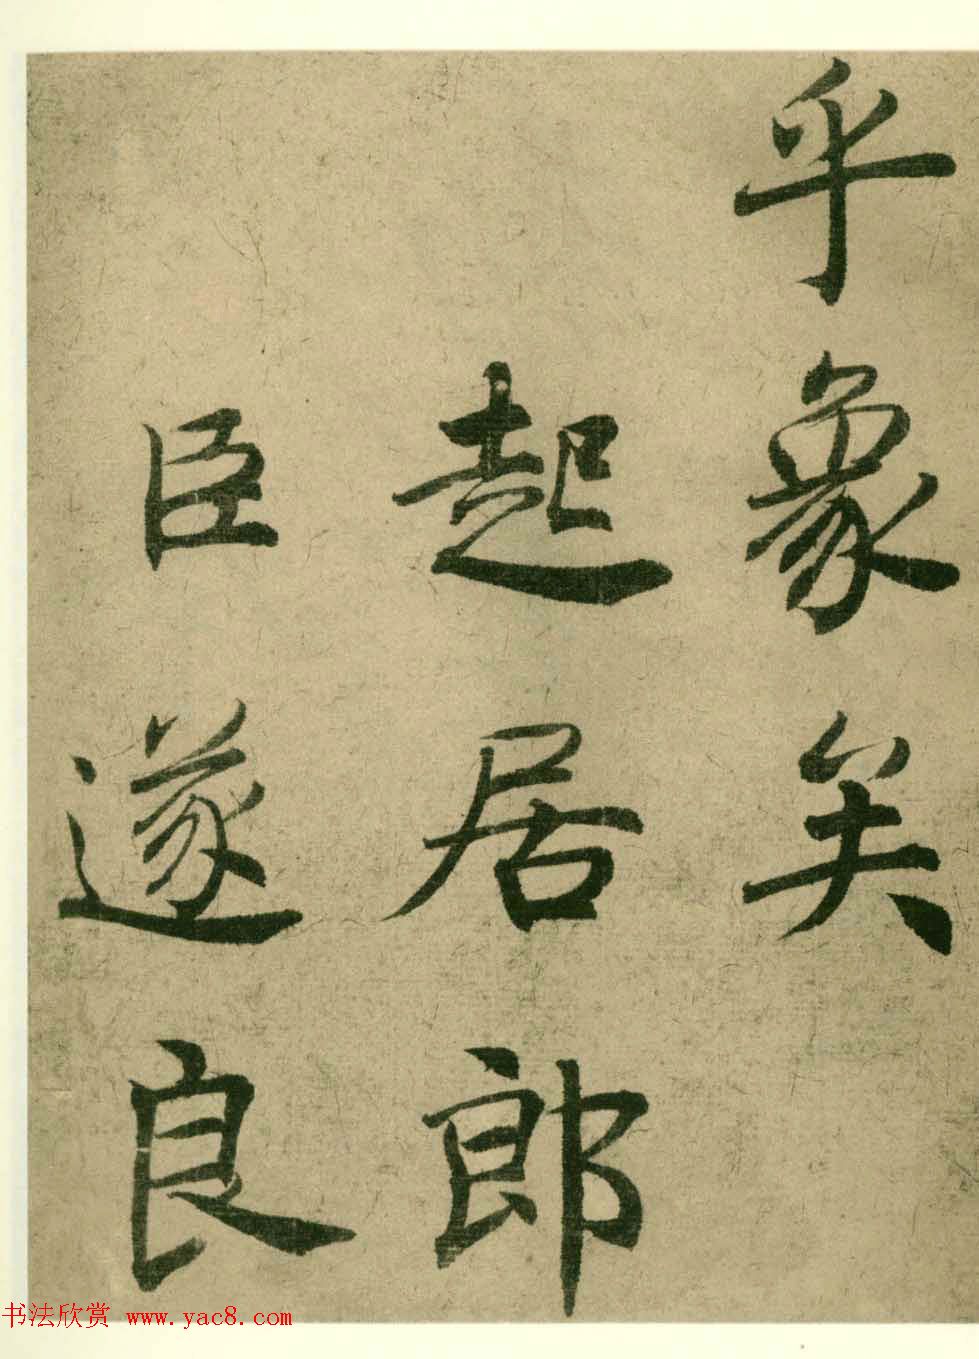 乎象矣
起居郎
臣遂良
书法欣赏 www.yac8.com